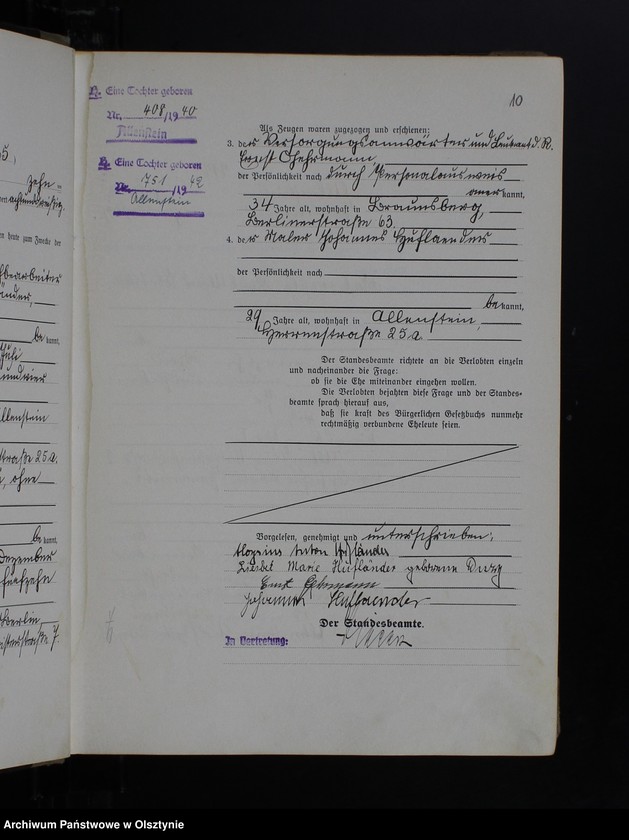 10
B. Eine Tochter geboren
Nr. 408/1940
Allenstein
B. Eine Tochter geboren
Nr. 1751/1942
Allenstein
Als Zeugen waren zugezogen und erschienen:
3. der Versorgungsanwärter und Leutnant d. R.
Ernst Gehrmann
der Persönlichkeit nach durch Personalausweis
anerkannt,
34 Jahre alt, wohnhaft in Braunsberg,
Berlinerstraße 63
4. der Maler Johannes Huflaender
der Persönlichkeit nach
bekannt,
29 Jahre alt, wohnhaft in Allenstein,
Herrenstraße 25a
Der Standesbeamte richtete an die Verlobten einzeln
und nacheinander die Frage:
ob sie die Ehe miteinander eingehen wollen.
Die Verlobten bejahten diese Frage und der Standes-
beamte sprach hierauf aus,
daß sie kraft des Bürgerlichen Gesetzbuchs nunmehr
rechtmäßig verbundene Eheleute seien.
Vorgelesen, genehmigt und unterschrieben:
Aloysius Anton Hufländer
Marie Hufländer geborene
Ernst Gehrmann
Johannes Huflaender
Der Standesbeamte.
In Vertretung:
zehn
heute zum Zwecke der
be kannt,
Juli
Allenstein
straße 25a.
ohne
be kannt,
Dezember
fünfzehn
Berlin
7.
Archiwum Państwowe w Olsztynie